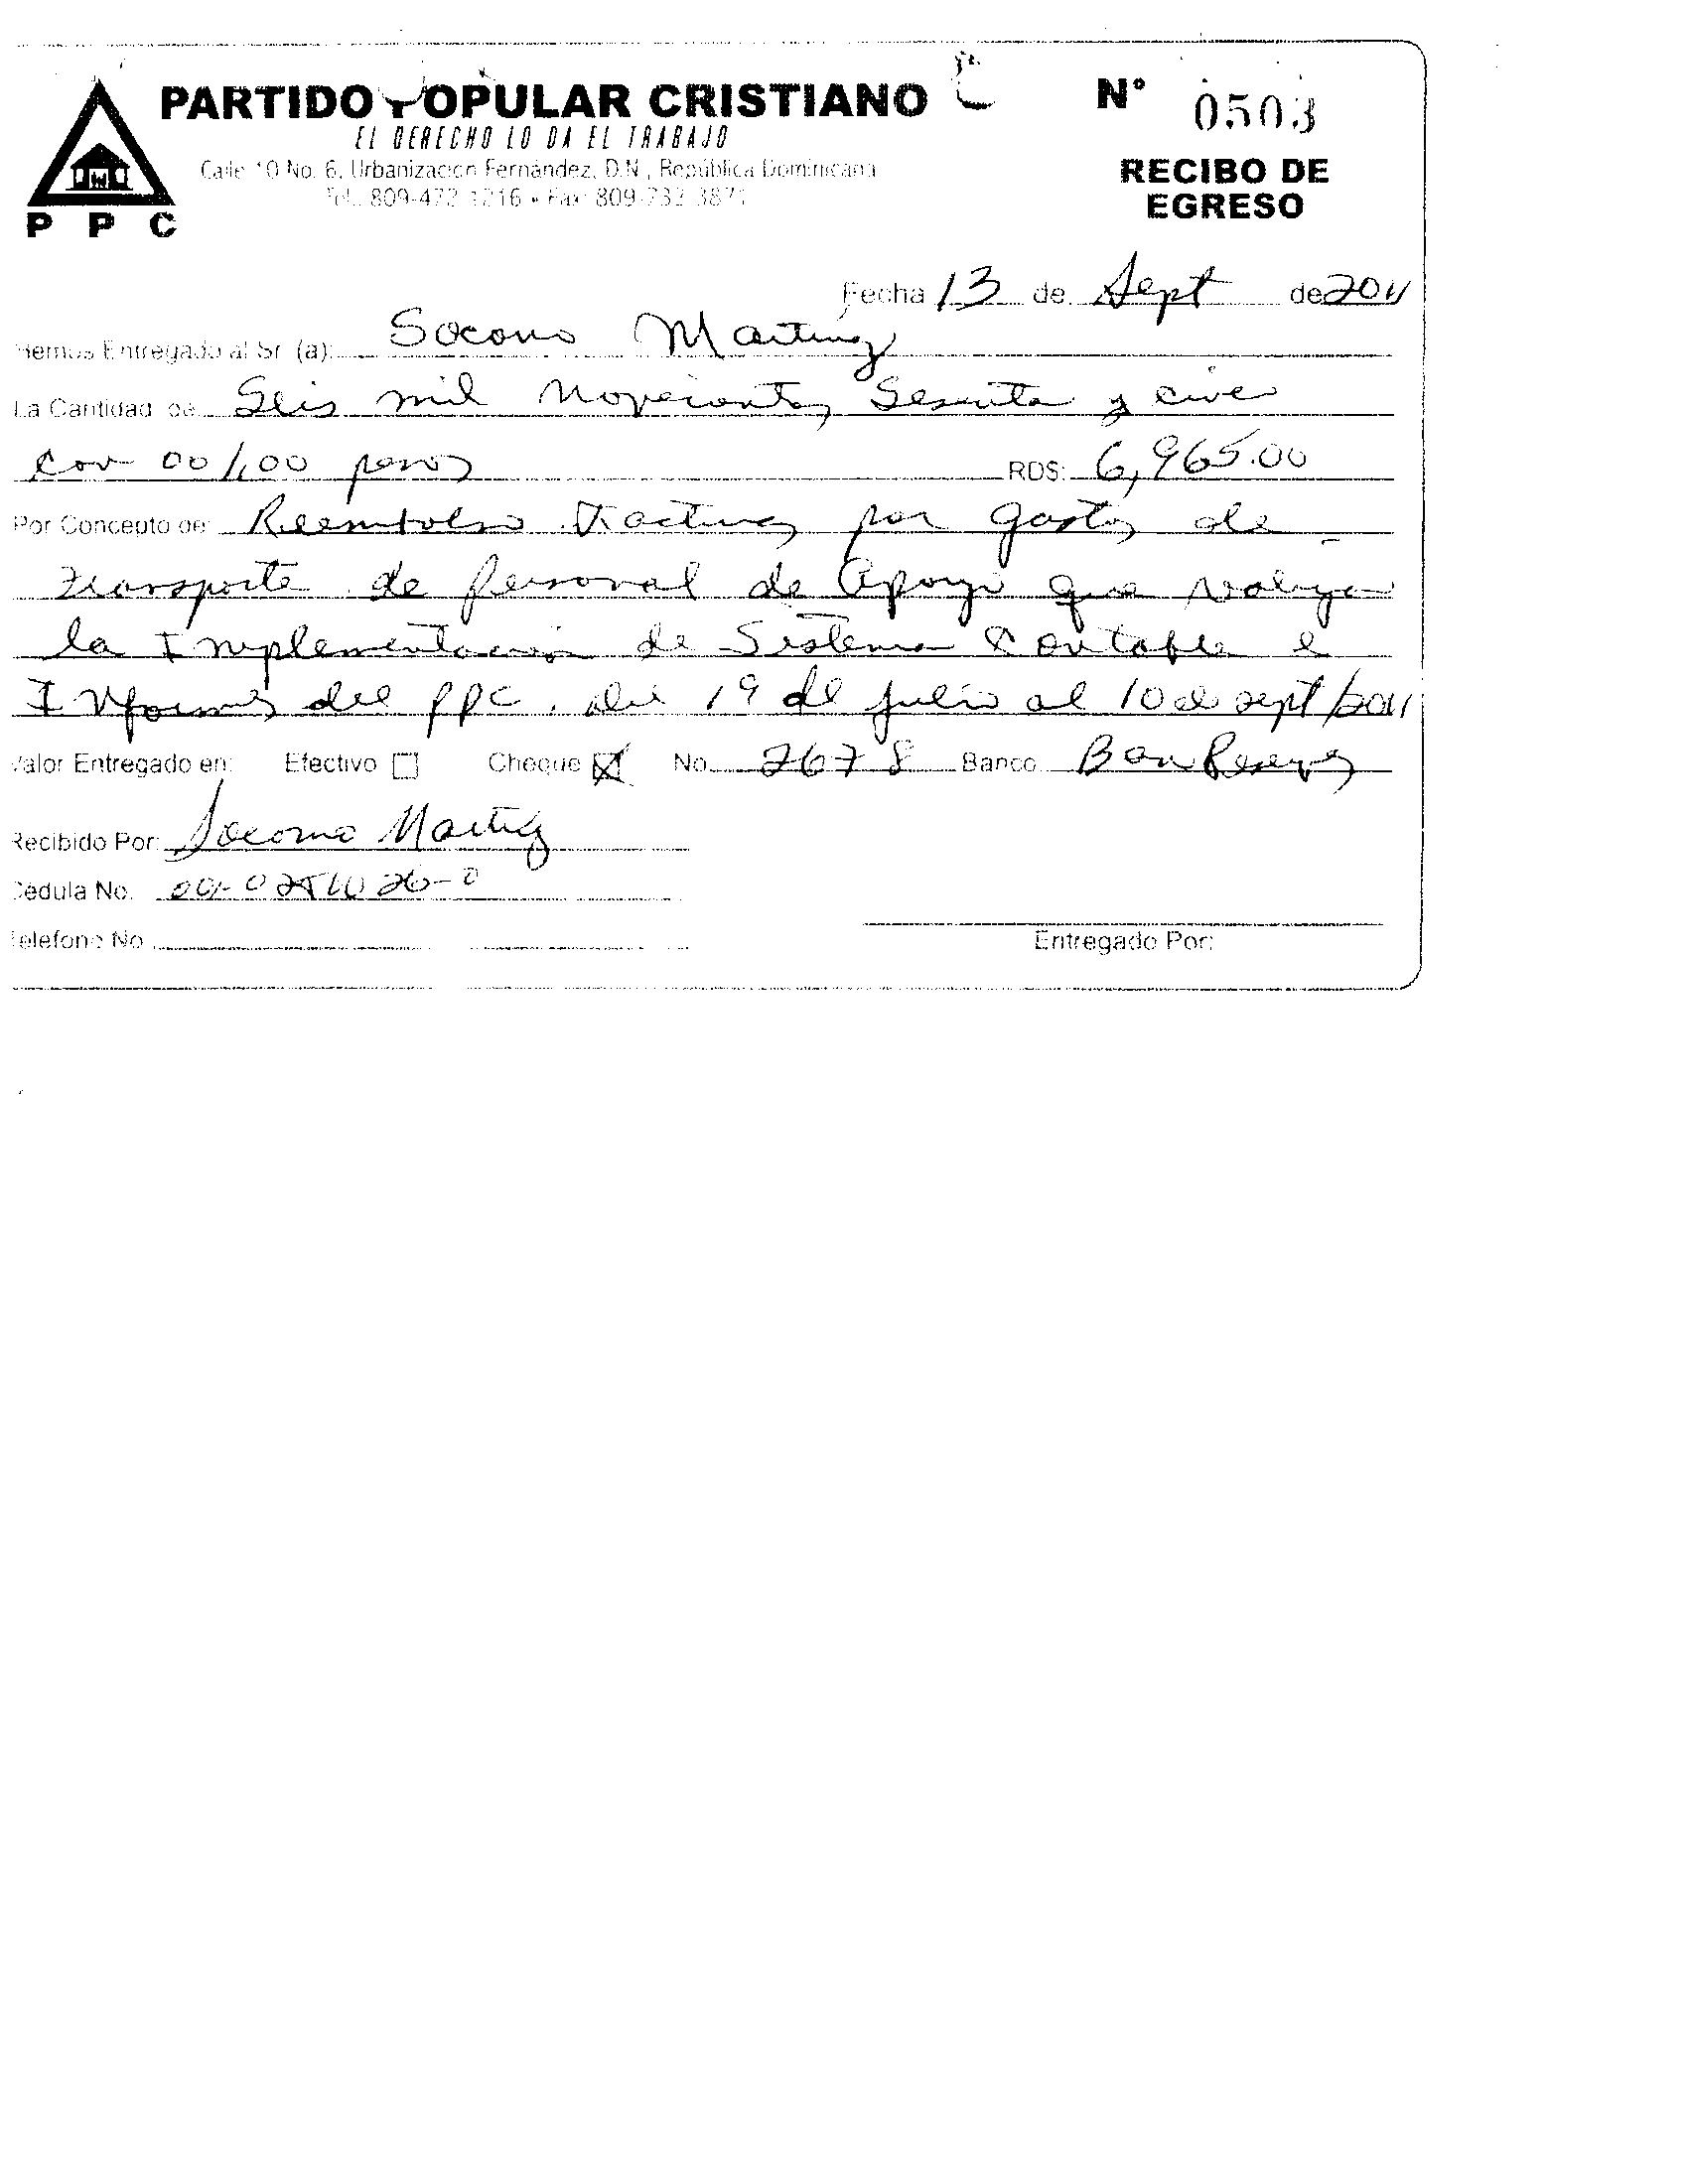 PARTIDO POPULAR CRISTIANO
N° 0503
EL DERECHO LO DA EL TRABAJO
Calle 10 No. 6, Urbanización Fernández, D.N., República Dominicana
Tel.: 809-472-1216 • Fax: 809-732-3871
RECIBO DE
EGRESO
P P C
Fecha 13 de Sept de 2011
Hemos Entregado al Sr. (a): Socorro Martinez
La Cantidad de Seis mil Novecientos Sesenta y cinco
con 00/100 pesos RD$: 6,965.00
Por Concepto de: Reembolso Facturas por gastos de
transporte de personal de Apoyo que realiza
la Implementación de Sistema Contable e
Informes del PPC. del 19 de julio al 10 de sept/2011
Valor Entregado en: Efectivo Cheque No. 2678 Banco BanReservas
Recibido Por: Socorro Martinez
Cédula No.
Teléfono No.
Entregado Por: